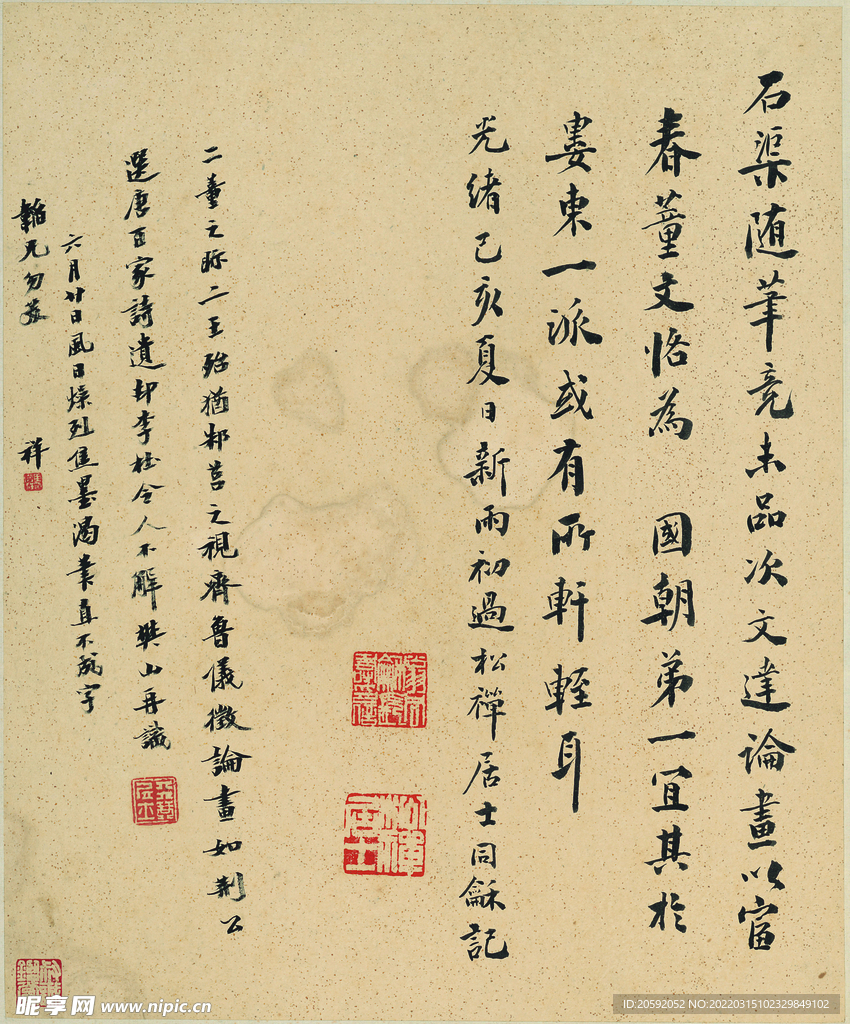 石渠随筆竟未品次文達論畫以富
春董文恪為 國朝第一宜其於
婁東一派或有所軒輊耳
光緒己亥夏日新雨初過松禪居士同龢記
二董之眎二王殆猶邾莒之視齊魯儀徵論畫如荆公
選唐百家詩遺却李杜令人不解 樊山再識
六月廿日風日燥烈焦墨渴筆直不成字
韜兄勿
祥
松禪居士
昵享网 www.nipic.cn
ID:20592052 NO:20220315102329849102